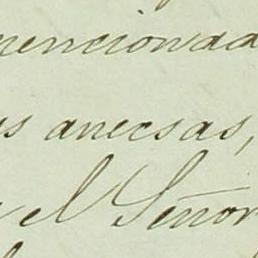 mencionada
s anecsas,
el Señor